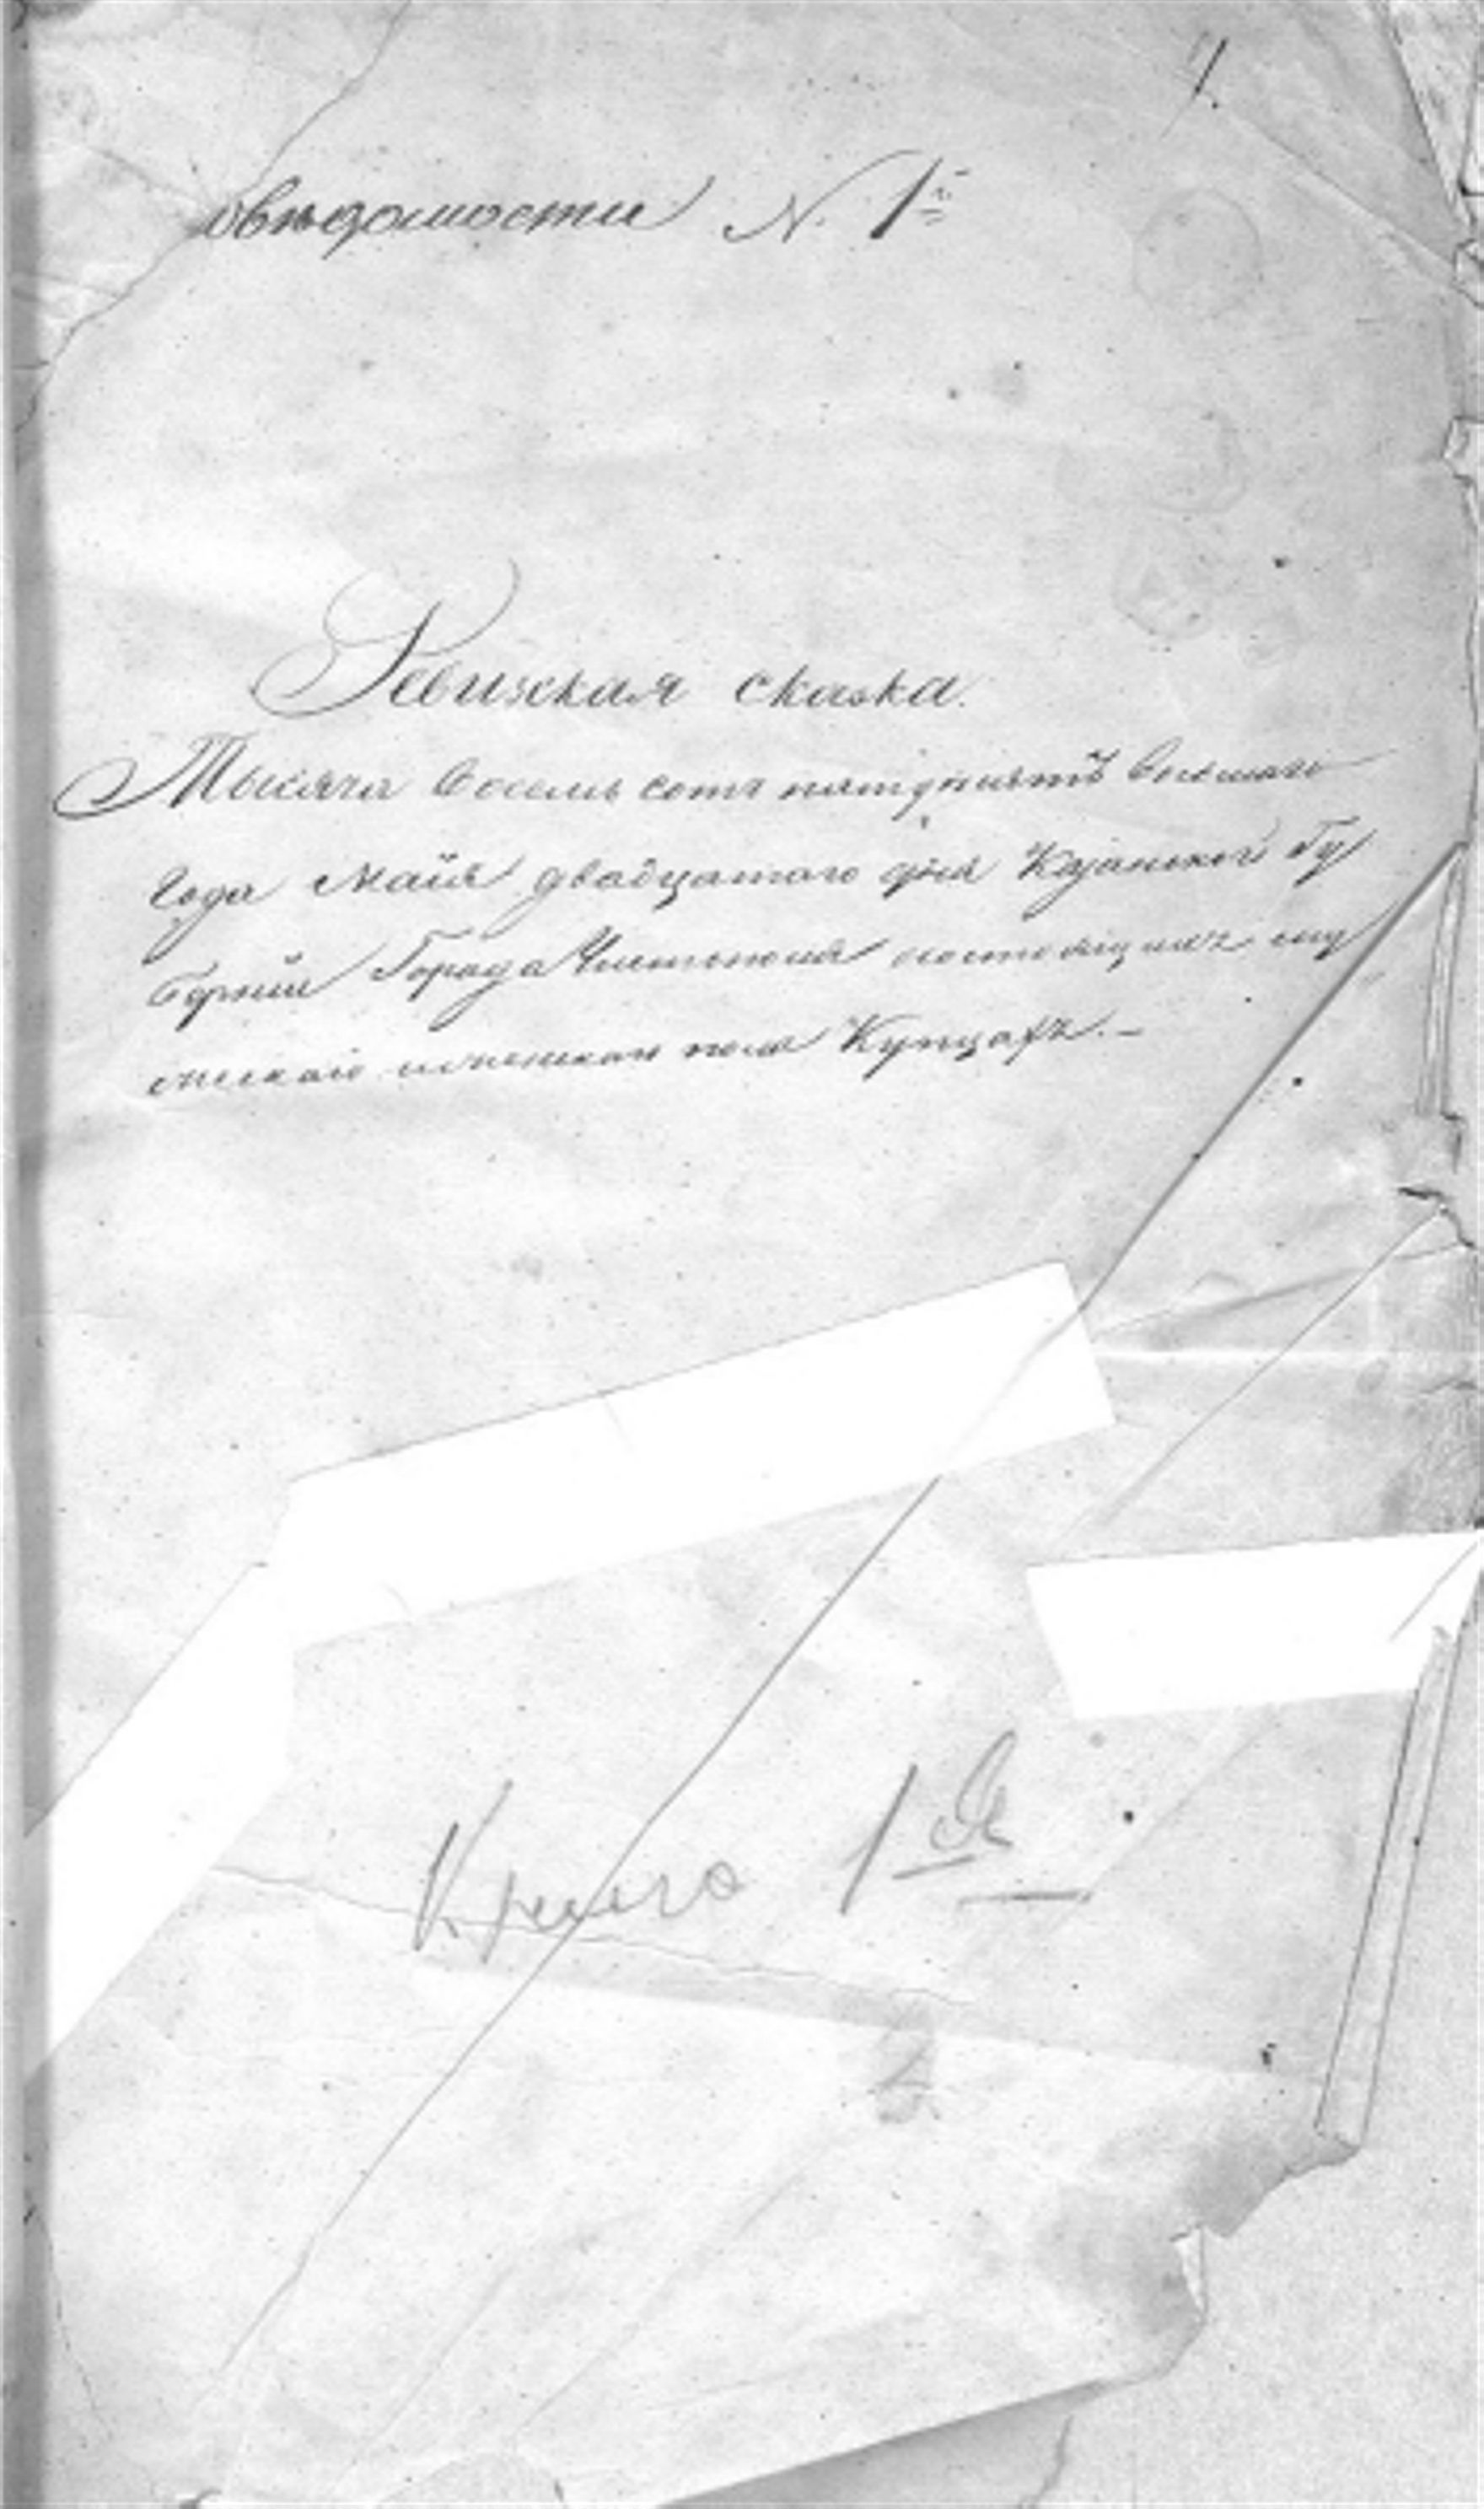 1.
овѣдомости N. 1й
Ревизская сказка.
Тысяча восемь сотъ пятдесятъ восьмаго
года Маія двадцатаго дня Казанской Гу
берніи Города Чистополя состоящихъ му
жескаго и женскаго пола Купцахъ. —
Книга 1я